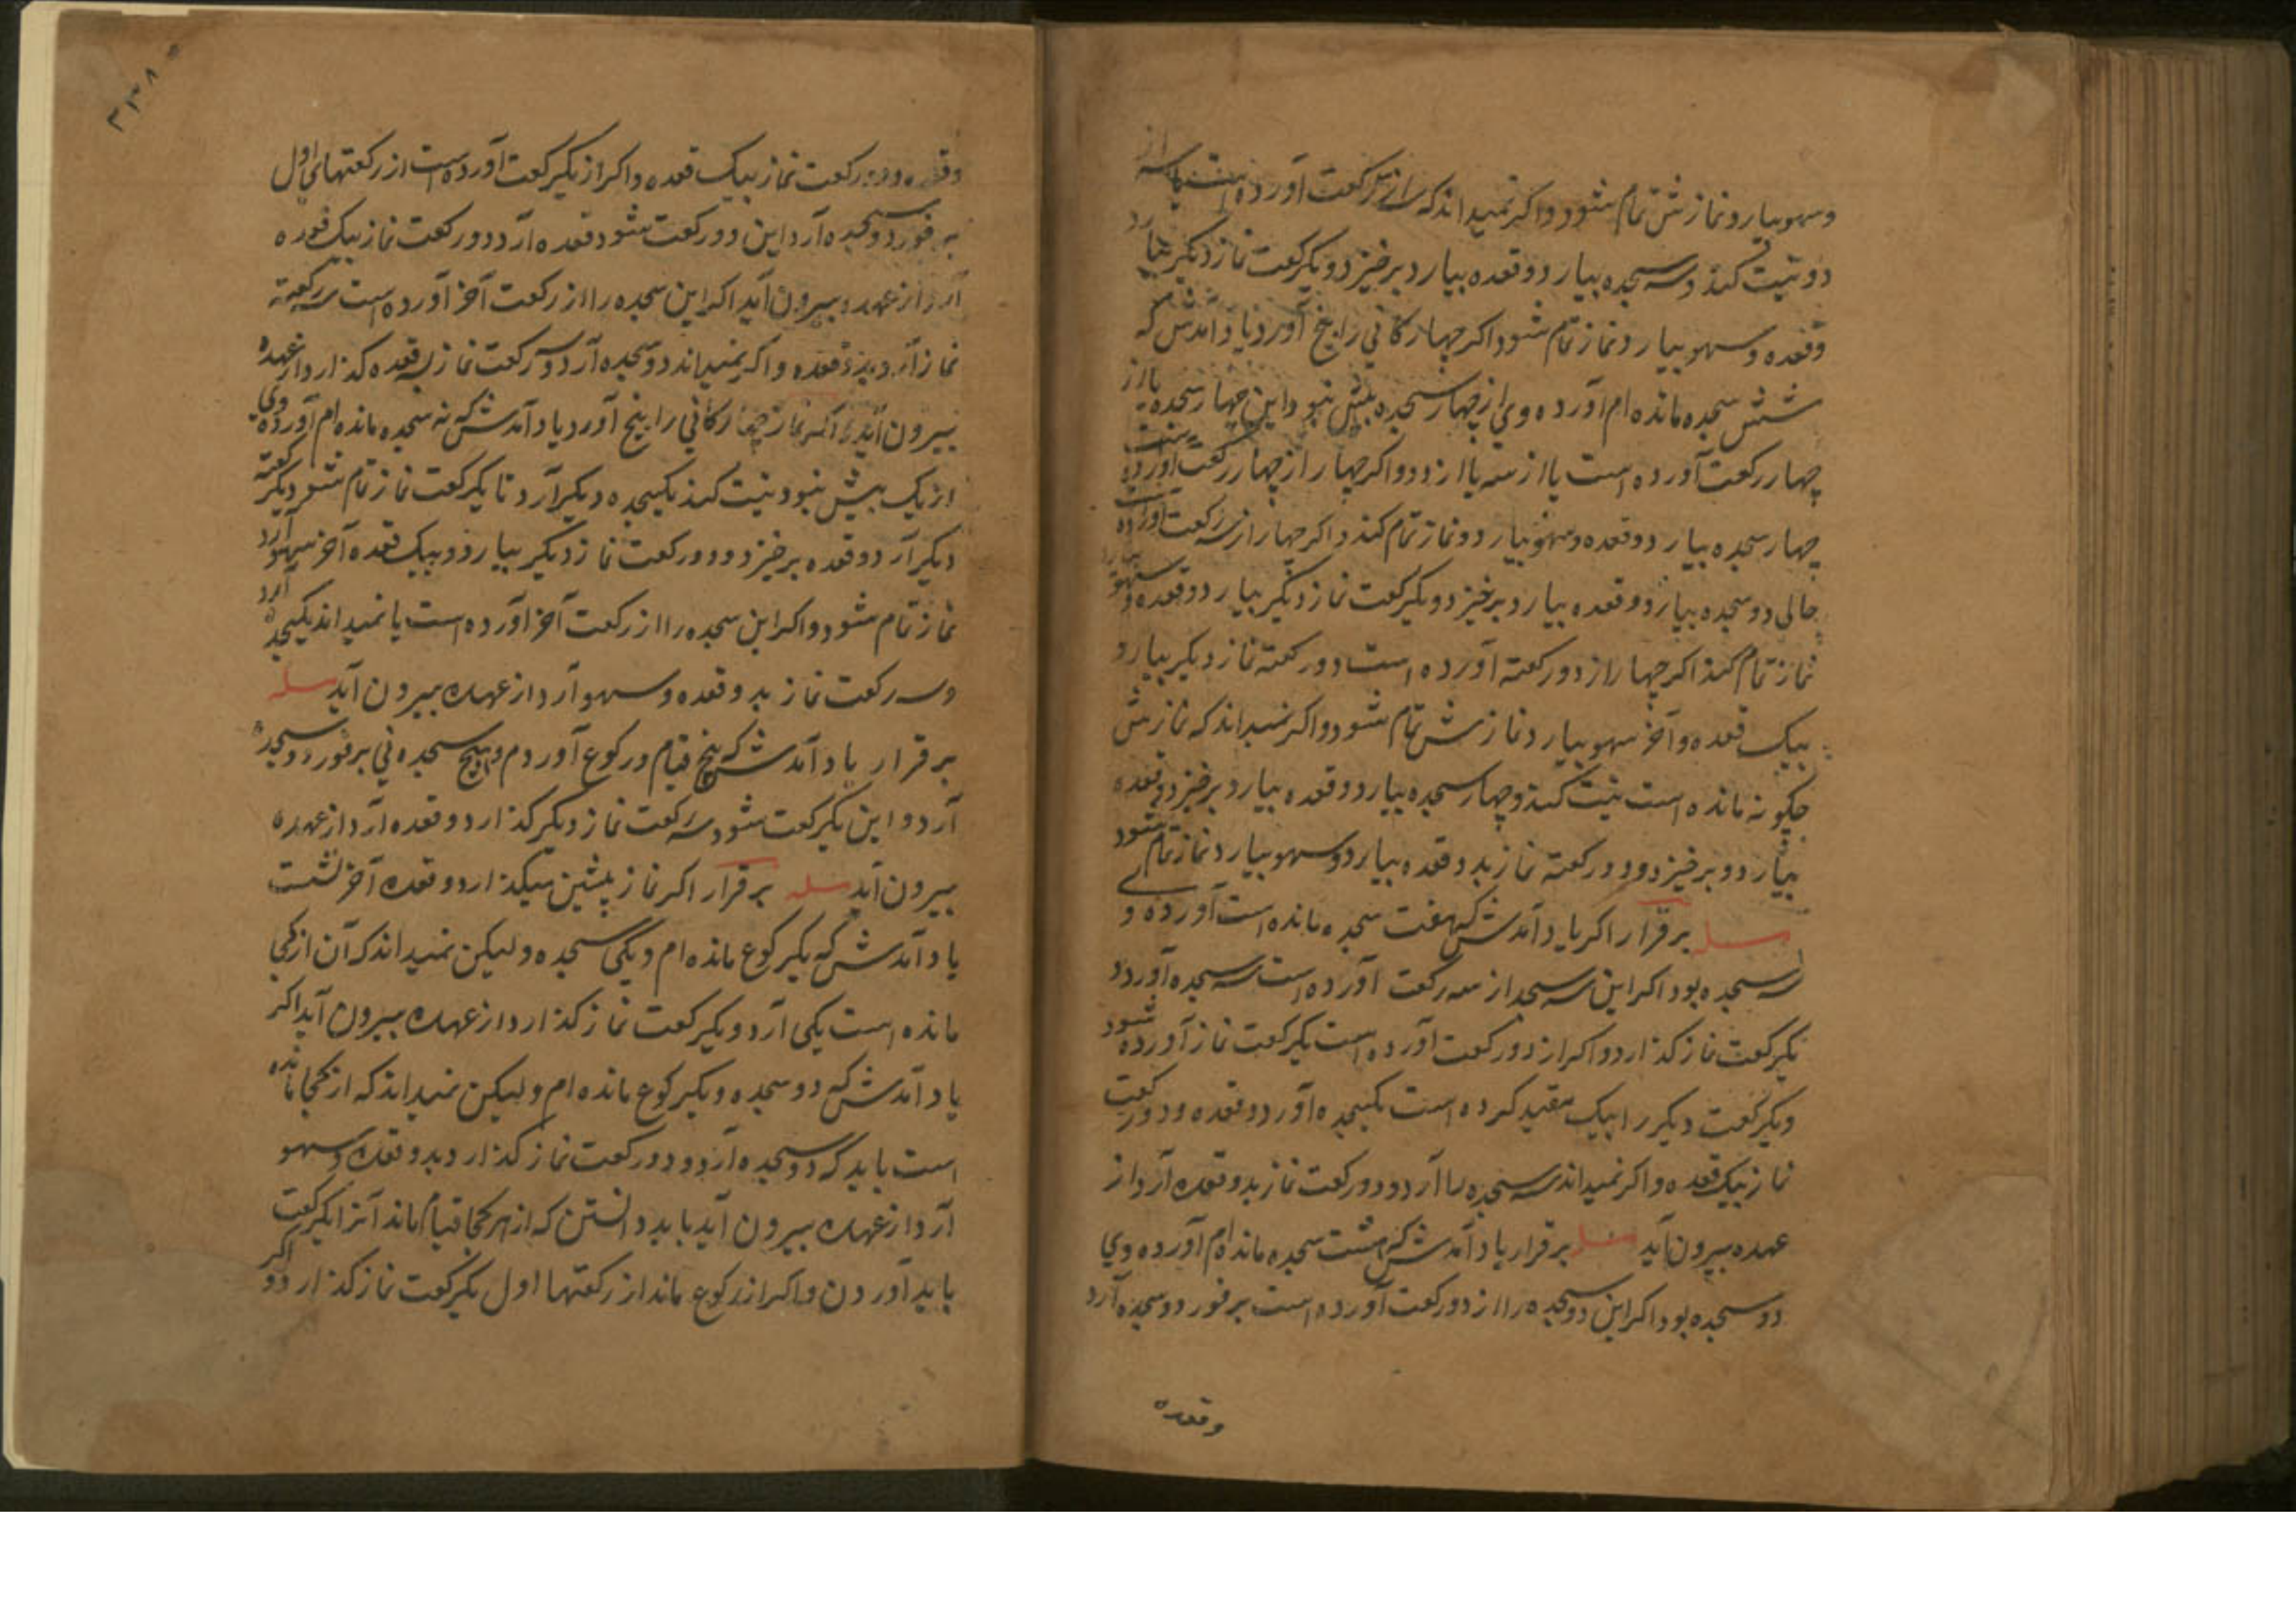 وسهو بیارد و نمازش تمام شود و اکر نمیداند که از یکرکعت آورده است یا از سه
دو نیت کند و سه سجده بیارد و قعده بیارد برخیزد و یکرکعت نماز دیکر بیارد
وقعده و سهو بیارد و نماز تمام شود اکر چهارکانی را پنج آورد یاد آمدش که
شش سجده مانده ام آورده وی از چهار سجده بیش نبود این چهار سجده یا از
چهار رکعت آورده است یا از سه یا از دو و اکر چهار از چهار رکعت آورده است
چهار سجده بیارد و قعده و سهو بیارد و نماز تمام کند و اکر چهار از سه رکعت آورده است
حالی دو سجده بیارد و قعده بیارد برخیزد و یکرکعت نماز دیکر بیارد و قعده و سهو بیارد
نماز تمام کند اکر چهار از دو رکعته آورده است دو رکعته نماز دیکر بیارد
بیک قعده و آخر سهو بیارد نمازش تمام شود و اکر نمیداند که نمازش
چکونه مانده است نیت کند و چهار سجده بیارد و قعده بیارد برخیزد و قعده
بیارد و برخیزد و دو رکعته نماز بدو قعده بیارد و سهو بیارد نماز تمام شود
مسله برقرار اکر یاد آمدش که هفت سجده مانده است آورده وی
سه سجده بود اکر این سه سجده از سه رکعت آورده است سه سجده آورد و
یکرکعت نماز کذارد و اکر از دو رکعت آورده است یکرکعت نماز آورده شود
و یکرکعت دیکر را بیک مقید کرده است یکسجده آورد و قعده و دو رکعت
نماز بیک قعده و اکر نمیداند سه سجده را آرد و دو رکعت نماز بدو قعده آرد از
عهده بیرون آید مسله برقرار یاد آمدش که هشت سجده مانده ام آورده وی
دو سجده بود اکر این دو سجده را از دو رکعت آورده است برفور دو سجده آرد
وقعده
وقعده و دو رکعت نماز بیک قعده و اکر از یکرکعت آورده است از رکعتهای اول
برفور دو سجده آرد این دو رکعت شود قعده آرد دو رکعت نماز بیک قعده
آرد از عهده بیرون آید اکر این سجده را از رکعت آخر آورده است سه رکعته
نماز آرد بدو قعده و اکر نمیداند دو سجده آرد و سه رکعت نماز بسه قعده کذارد از عهده
بیرون آید اکر نماز چهارکانی را پنج آورد یاد آمدش که نه سجده مانده ام آورده وی
از یک بیش نبود نیت کند یکسجده دیکر آرد تا یکرکعت نماز تمام شود یکرکعته
دیکر آرد و قعده برخیزد و دو رکعت نماز دیکر بیارد و بیک قعده آخر سهو آرد
نماز تمام شود و اکر این سجده را از رکعت آخر آورده است یا نمیداند یکسجده آرد
و سه رکعت نماز بدو قعده و سهو آرد از عهده بیرون آید مسله
برقرار یاد آمدش که پنج قیام و رکوع آوردم و هیچ سجده نی برفور دو سجده
آرد و این یکرکعت شود سه رکعت نماز دیکر کذارد و قعده آرد از عهده
بیرون آید مسله برقرار اکر نماز پیشین میکذارد و قعده آخر نشست
یاد آمدش که یکرکوع مانده ام و یکی سجده ولیکن نمیداند که آن از کجا
مانده است یکی آرد و یکرکعت نماز کذارد از عهده بیرون آید اکر
یاد آمدش که دو سجده و یکرکوع مانده ام ولیکن نمیداند که از کجا مانده
است باید که دو سجده آرد و دو رکعت نماز کذارد بدو قعده و سهو
آرد از عهده بیرون آید باید دانستن که از هر کجا قیام ماند آنرا یکرکعت
باید آوردن و اکر از رکوع ماند از رکعتها اول یکرکعت نماز کذارد و اکر